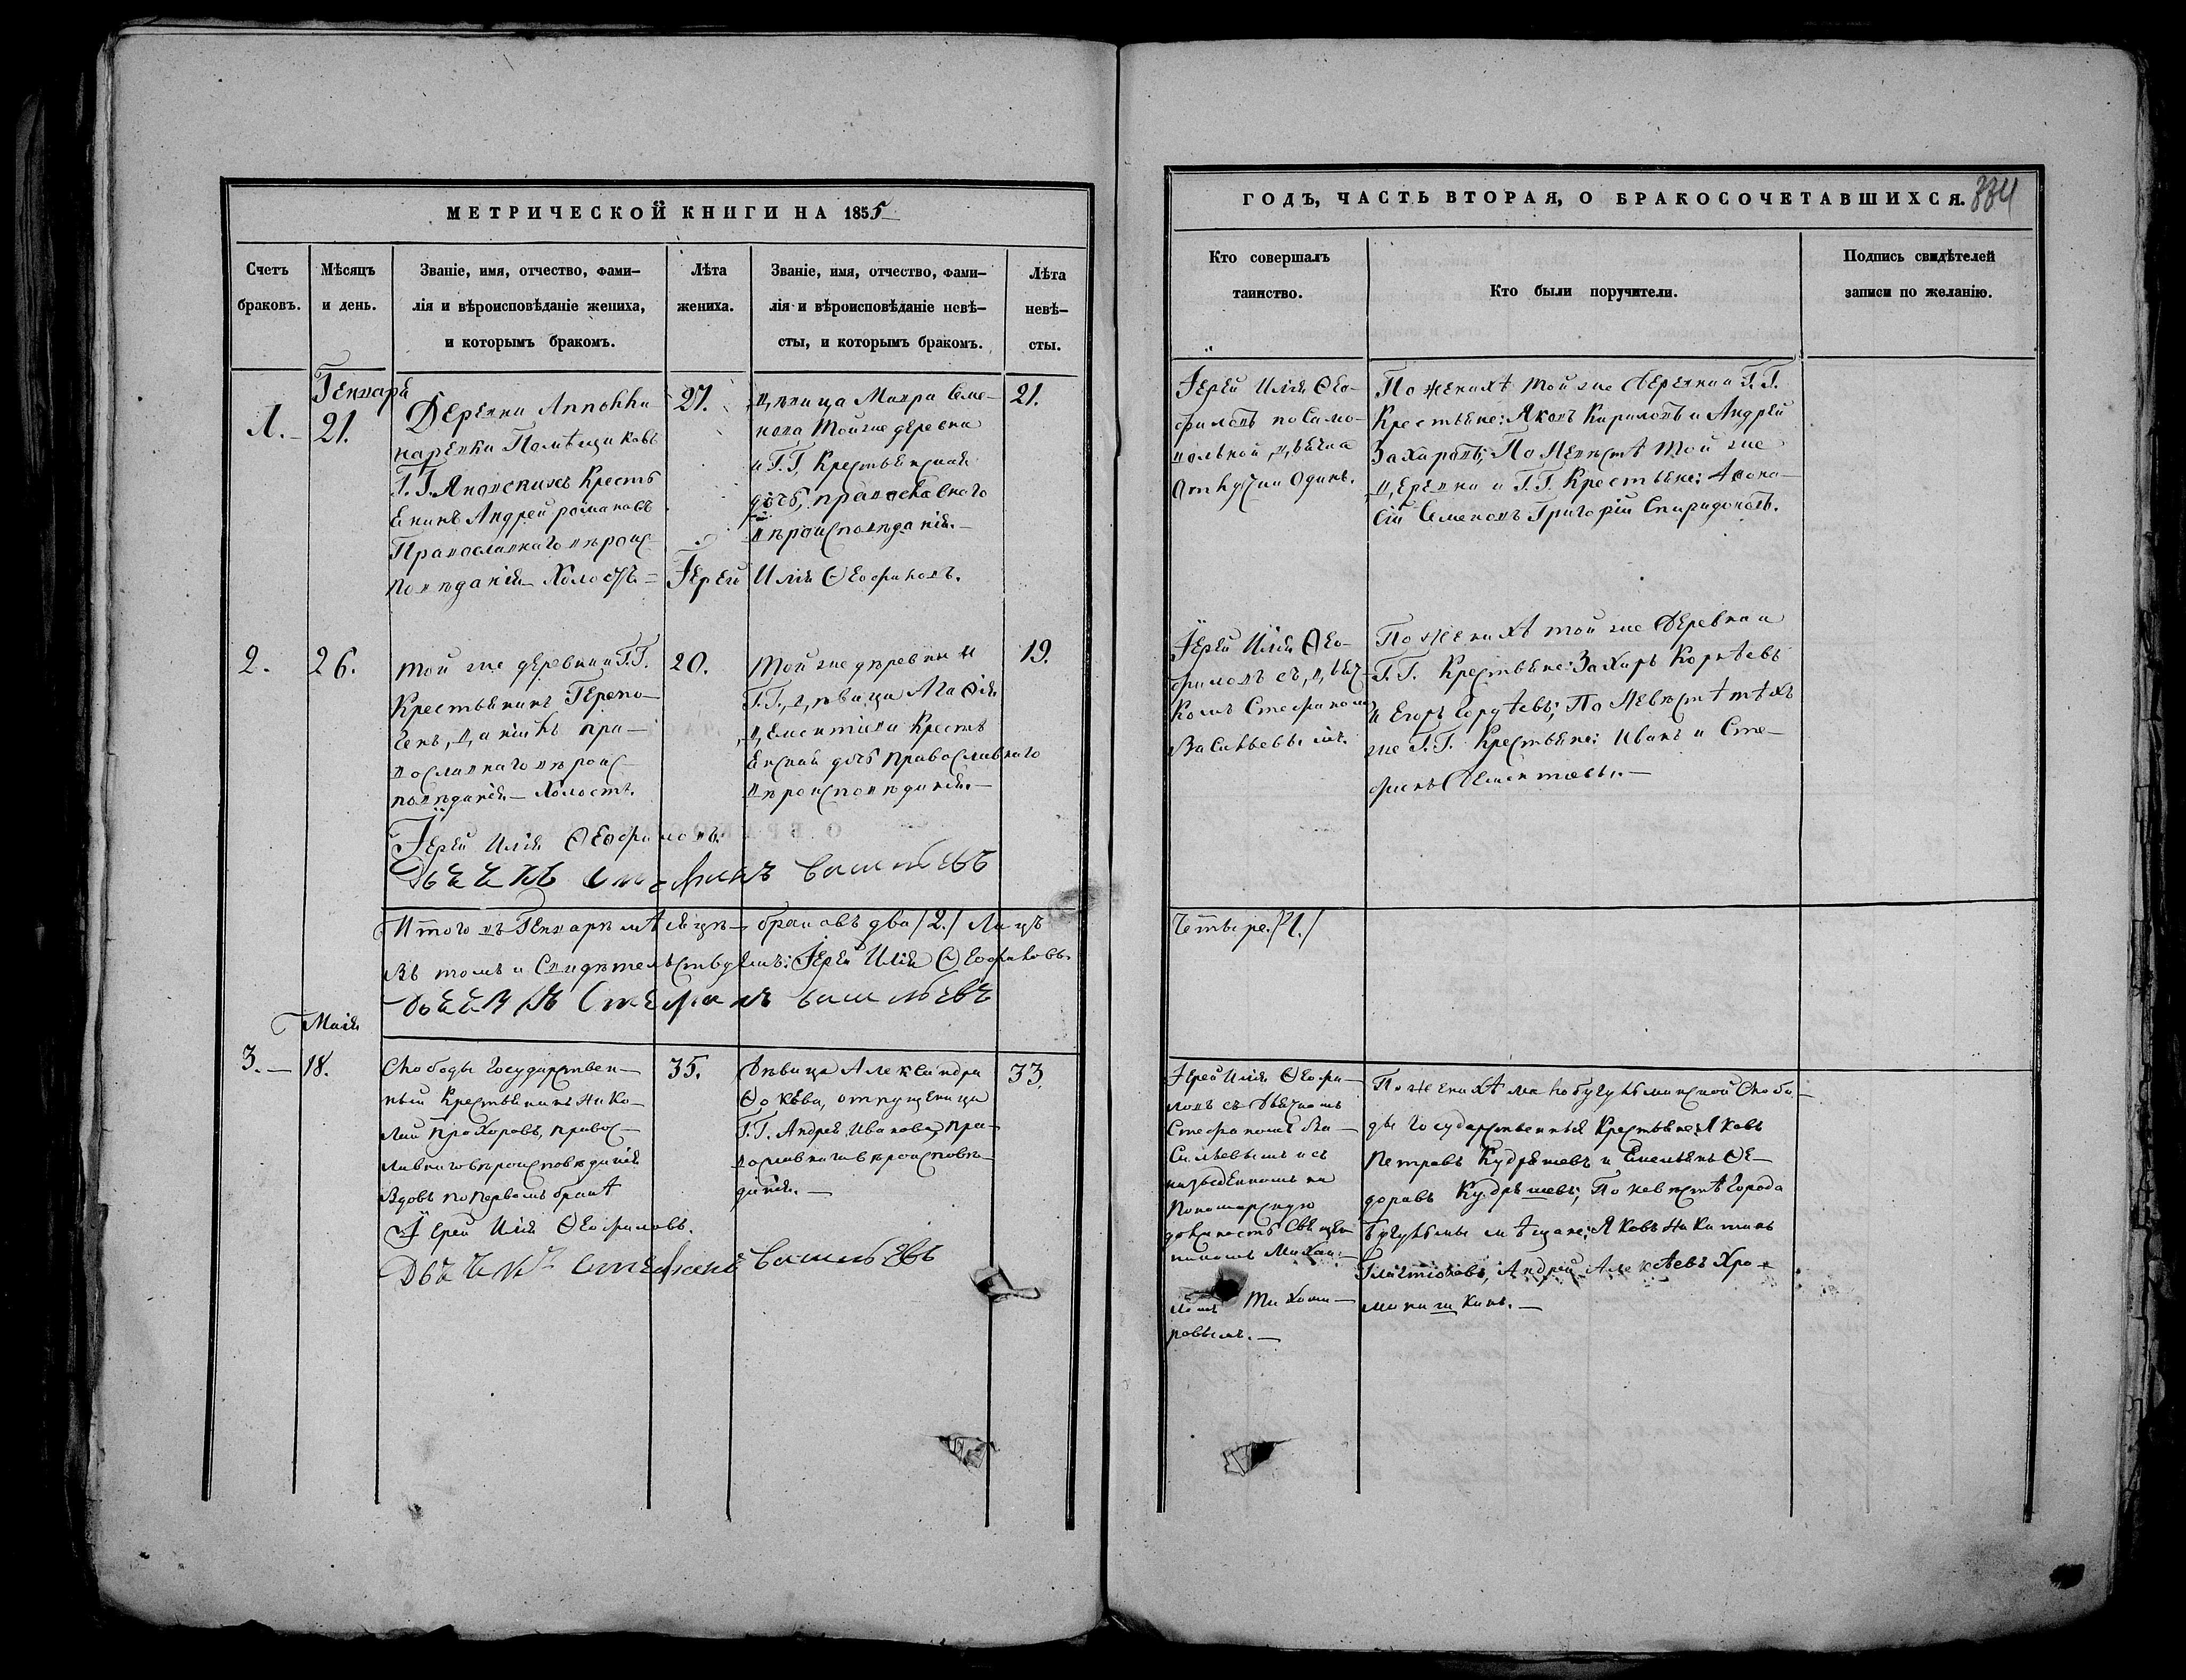 МЕТРИЧЕСКОЙ КНИГИ НА 1855
Счетъ браковъ.
Мѣсяцъ и день.
Званіе, имя, отчество, фами-
лія и вѣроисповѣданіе жениха,
и которымъ бракомъ.
Лѣта
жениха.
Званіе, имя, отчество, фами-
лія и вѣроисповѣданіе невѣ-
сты, и которымъ бракомъ.
Лѣта
невѣ-
сты.
Генваря
1.
21.
Деревни
Помѣщиковъ
Г.Г. Кресть
янинъ Андрей романовъ
Православнаго вѣроис-
повѣданія Холостъ
27.
Дѣвица Мавра Семе-
нова Тойже деревни
и Г.Г. Крестьянская
дочь, православнаго
вѣроисповѣданія.
21.
Іерей Илія Ѳеофиловъ.
2.
26.
Той же деревни и Г.Г.
Крестьянинъ
пра-
вославнаго вѣроис-
повѣданія. Холостъ.
20.
Той же деревни и
Г.Г. дѣвица Агафія
Дементіева Кресть
янская дочь Православнаго
вѣроисповѣданія.
19.
Іерей Илія Ѳеофиловъ.
Дьячекъ Стефанъ Васильевъ
Итого въ Генварѣ мѣсяцѣ браковъ два /2./ Лицъ
Въ томъ и Свидѣтельствуемъ: Іерей Илія Ѳеофиловъ.
Дьячекъ Стефанъ Васильевъ
Маія
3.
18.
Слободы Государствен-
ный Крестьянинъ Нико-
лай Прохоровъ, правос-
лавнаго вѣроисповѣданія
Вдовъ по первомъ бракѣ
35.
Дѣвица Александра
Ѳокѣва, отпущеница
Г.Г. Андрея Иванова, Пра-
вославнаго вѣроисповѣ-
данія.
33.
Іерей Илія Ѳеофиловъ.
Дьячекъ Стефанъ Васильевъ
ГОДЪ, ЧАСТЬ ВТОРАЯ, О БРАКОСОЧЕТАВШИХСЯ.
334
Кто совершалъ
таинство.
Кто были поручители.
Подпись свидѣтелей
записи по желанію.
Іерей Илія Ѳео-
филовъ по Само-
вольной дьячка
Отлучки Одинъ.
По Женихѣ той же Деревни и Г.Г.
Крестьяне: Яковъ Кириловъ и Андрей
Захаровъ; По Невѣстѣ Той же
Деревни и Г.Г. Крестьяне: Афона-
сій Семеновъ Григорій Спиридоновъ.
Іерей Илія Ѳео-
филовъ съ дьяч-
комъ Стефаномъ
Васильевымъ.
По Женихѣ той же Деревни и
Г.Г. Крестьяне: Захаръ Корнѣевъ
и Егоръ Гордѣевъ; По Невѣстѣ тѣхъ
же Г.Г. Крестьяне: Иванъ и Сте-
фанъ Дементьевы.
Четыре. /4./
Іерей Илія Ѳеофи-
ловъ съ Дьячкомъ
Стефаномъ Ва-
сильевымъ и съ
Пономарскую
должность
Михаи-
ломъ Тихоми-
ровымъ.
По Женихѣ малобугульминской Слобо-
ды Государственныя Крестьяне: Яковъ
Петровъ Кудряшевъ и Емельянъ Ѳе-
доровъ Кудряшевъ; По невѣстѣ Города
Бугульмы мѣщане: Яковъ Никитинъ
Андрей Алексѣевъ